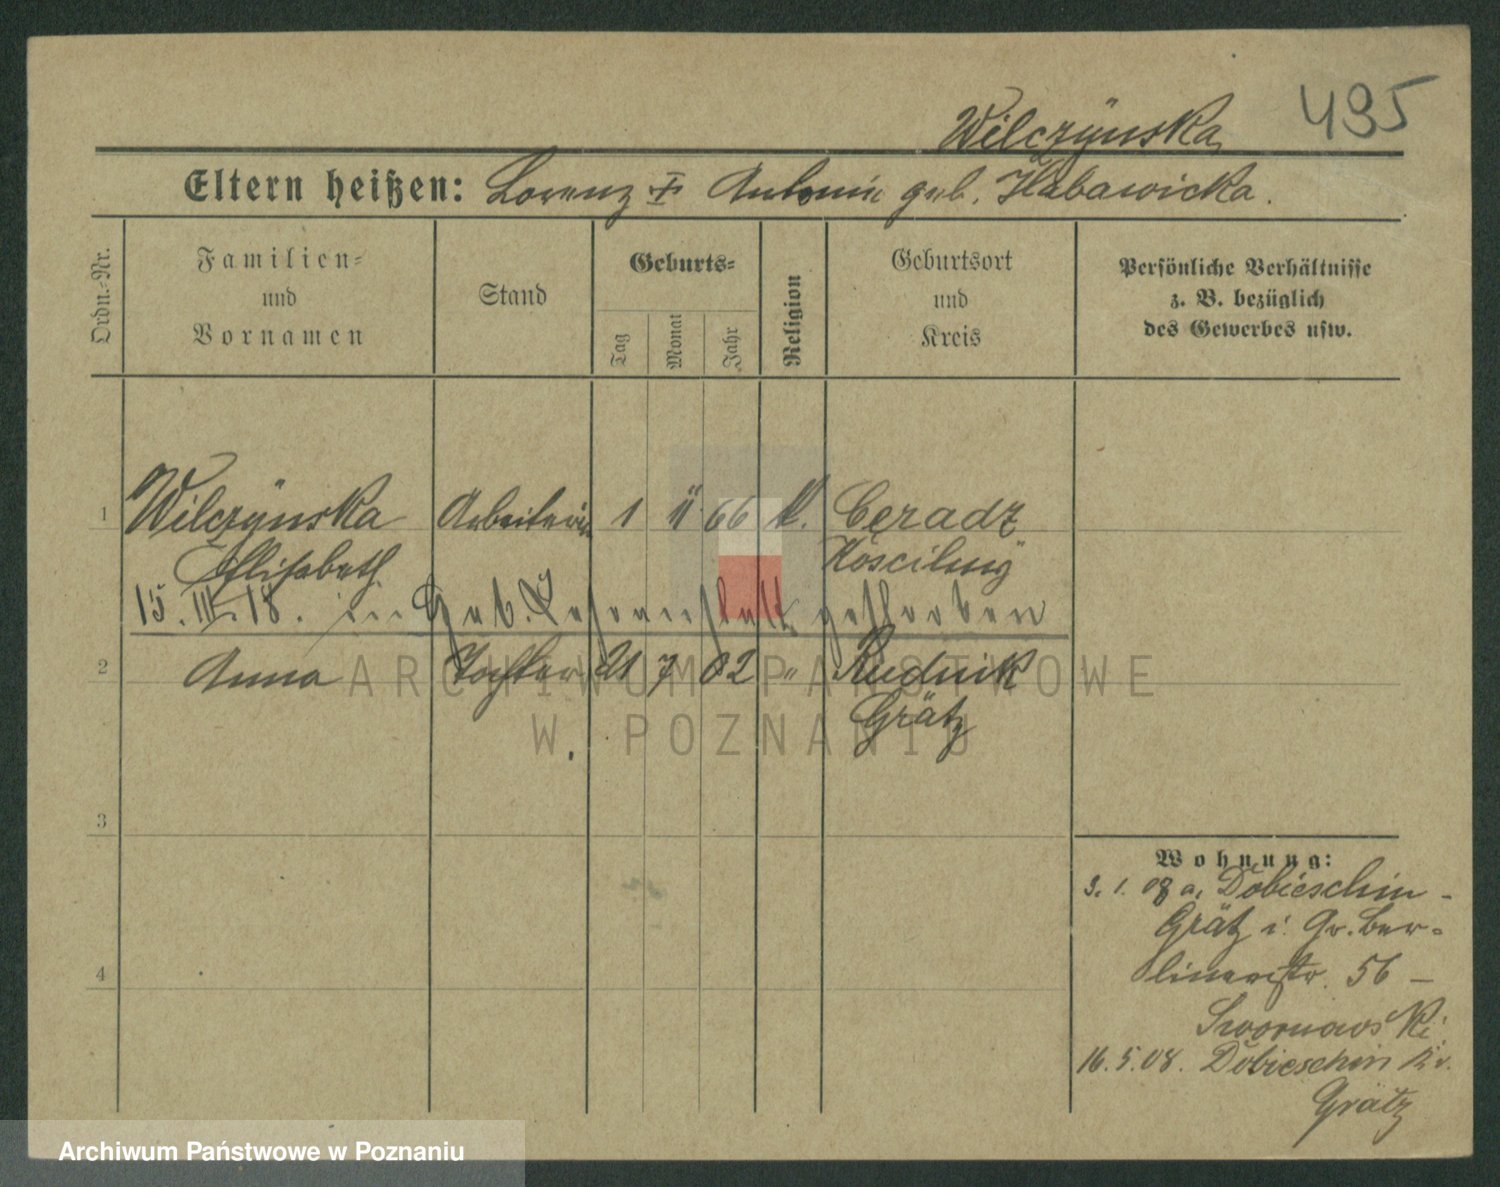 495
Wilczÿnska
Eltern heißen: Lorenz † Antonie geb. Habawicka.
Ordn.-Nr.
Familien-
und
Vornamen
Stand
Geburts-
Tag
Monat
Jahr
Religion
Geburtsort
und
Kreis
Persönliche Verhältnisse
z. B. bezüglich
des Gewerbes usw.
1 Wilczÿnska Arbeiterin 1 11 66 k. Ceradz
Elisabeth
15. III. 18. in gestorben
2 Anna Tochter 21 7 02 " Rudnik
Grätz
3
4
Wohnung:
3. 1. 08 a. Dobieschin -
Grätz i. Gr. Ber-
linerstr. 56 -
16. 5. 08. Dobieschin Kr.
Grätz
ARCHIWUM PAŃSTWOWE
W POZNANIU
Archiwum Państwowe w Poznaniu